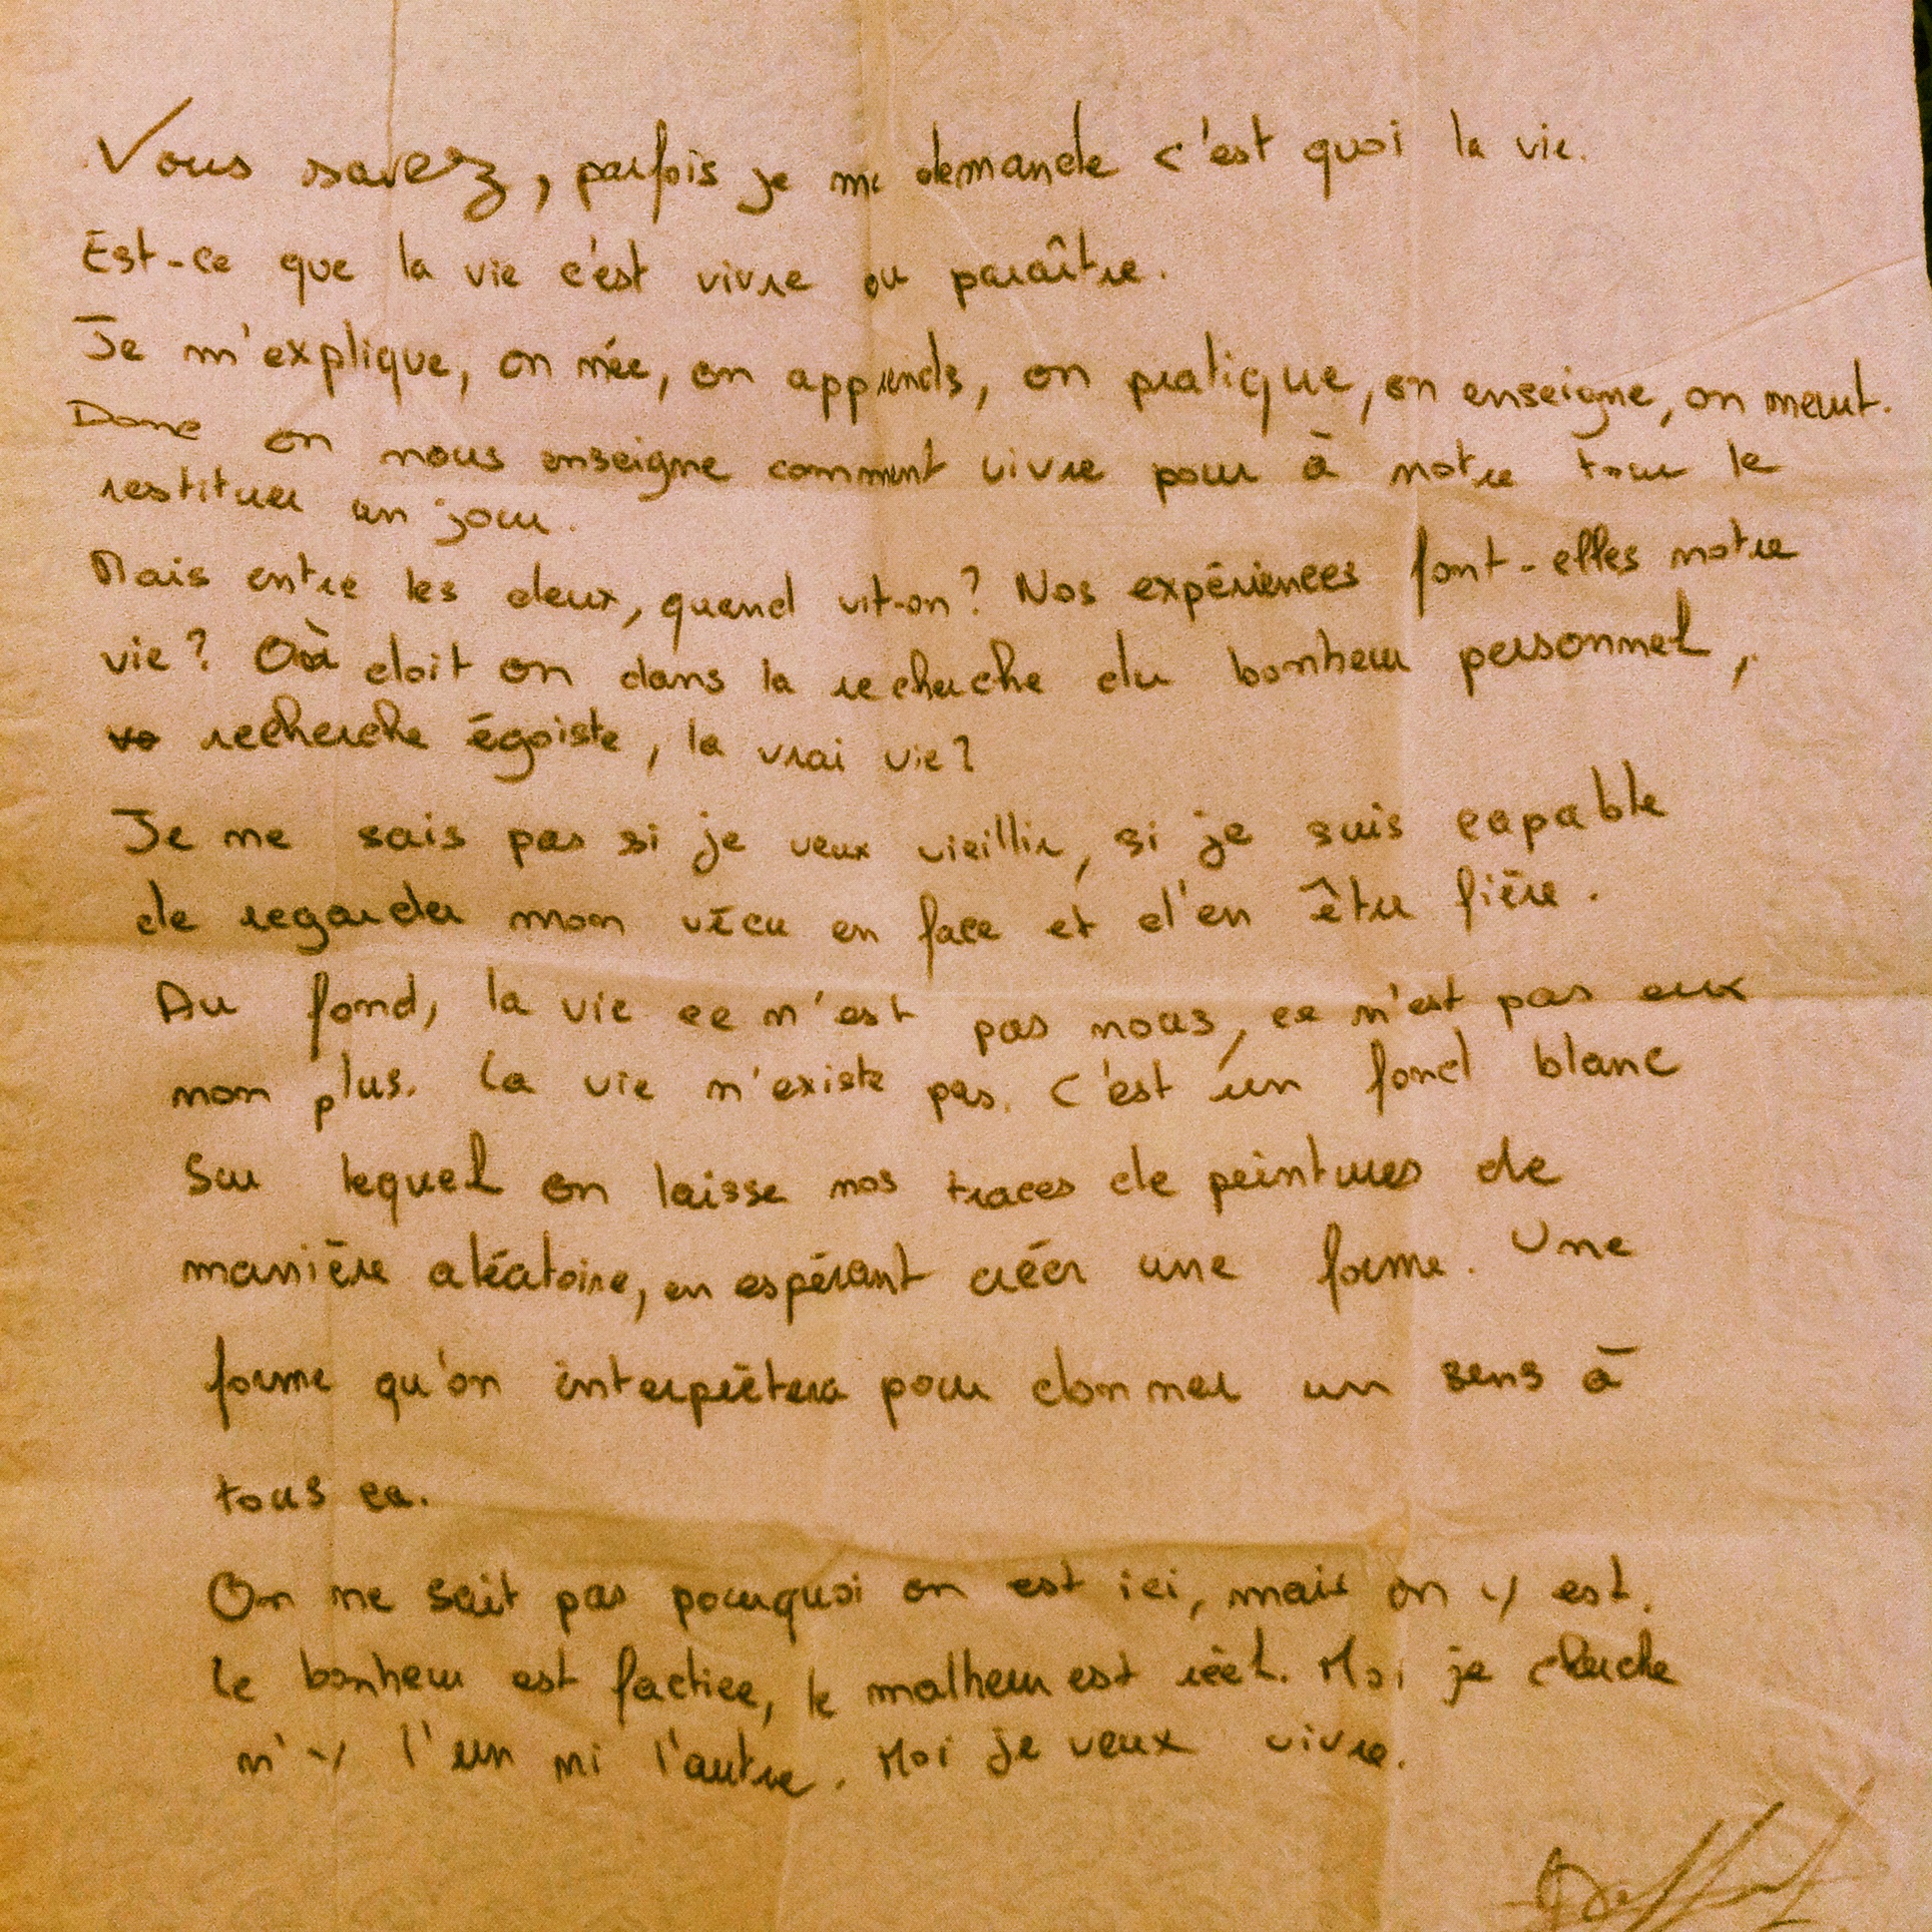 Vous savez, parfois je me demande c'est quoi la vie.
Est-ce que la vie c'est vivre ou paraître.
Je m'explique, on née, on apprends, on pratique, on enseigne, on meurt.
Donc on nous enseigne comment vivre pour à notre tour le
restituer un jour.
Mais entre les deux, quand vit-on? Nos expériences font-elles notre
vie? Où doit on dans la recherche du bonheur personnel,
recherche égoiste, la vrai vie?
Je ne sais pas si je veux vieillir, si je suis capable
de regarder mon vécu en face et d'en être fière.
Au fond, la vie ce n'est pas nous, ce n'est pas eux
non plus. La vie n'existe pas. C'est un fond blanc
Sur lequel on laisse nos traces de peintures de
manière aléatoire, en espérant créer une forme. Une
forme qu'on interprètera pour donner un sens à
tous ca.
On ne sait pas pourquoi on est ici, mais on y est.
Le bonheur est factice, le malheur est réel. Moi je cherche
n'y l'un ni l'autre. Moi je veux vivre.